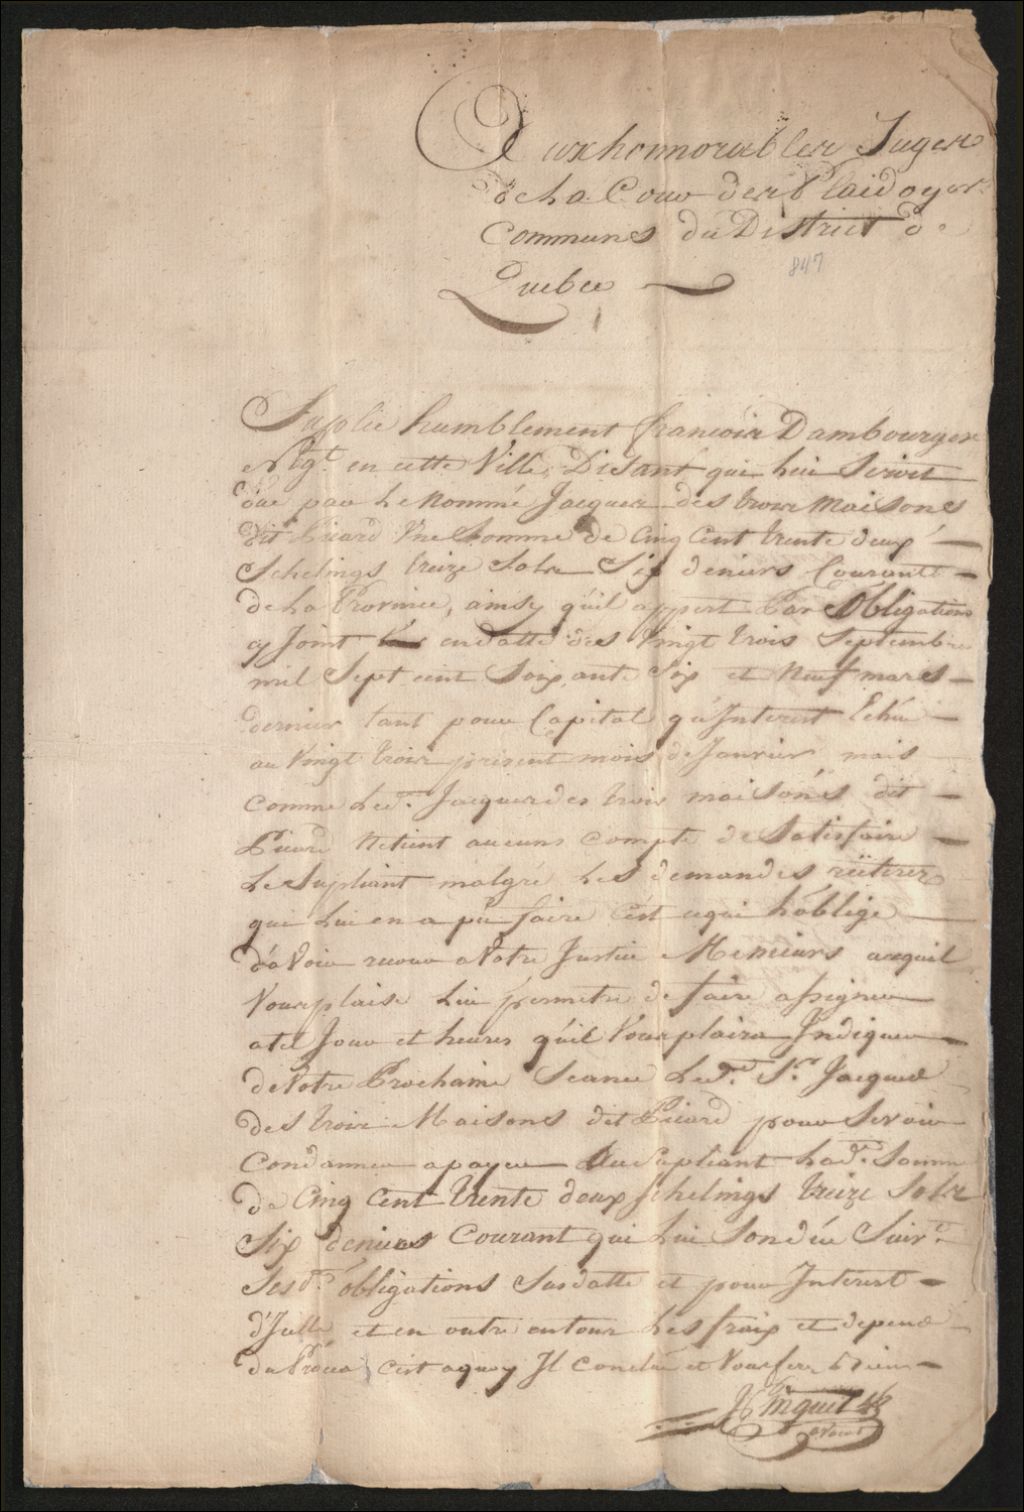 Aux honnorables Juges
de La Cour des Plaidoyers
Communs du District de
847
Quebec
Suplie humblement francois Dambourges
Negt. en cette Ville, Disant qui Lui Seroit
due par Le Nommé Jacques des trois Maisons
dit Picard Une Somme de Cinq Cent trente deux
Schelings treize Sols Six deniers Courant
de La Province, ainsy qu'il appert Par Obligations
cy Joint en datte des Vingt trois Septembre
mil Sept cent Soixante Six et Neuf mars
dernier tant pour Capital qu'Interest Echu
au Vingt trois present mois de Janvier mais
Comme Led. Jacques des trois maisonés dit
Picard Netient aucuns compte de Satisfaire
Le Supliant malgré Les demandes reiterez
qui Lui en a pu faire C'est cequi L'oblige
d'avoir recour a Votre Justice Messieurs acequil
Vous plaise Lui permetre de faire assigner
a tel Jour et heures qu'il Vous plaira Indiquer
de Votre Prochaine Seance Led. Sr. Jacques
des trois Maisons dit Picard pour Sevoir
Condanner a payer Au Supliant Lad. Somme
de Cinq Cent trente deux Schelings treize Sols
Six deniers Courant qui Lui Son dûe Suivt.
Sesd. obligations Susdatte et pour Interest
d'Jcelle et en outre entous Les fraix et depend
du Procès C'est aquoy Il Conclue et Vous fere bien